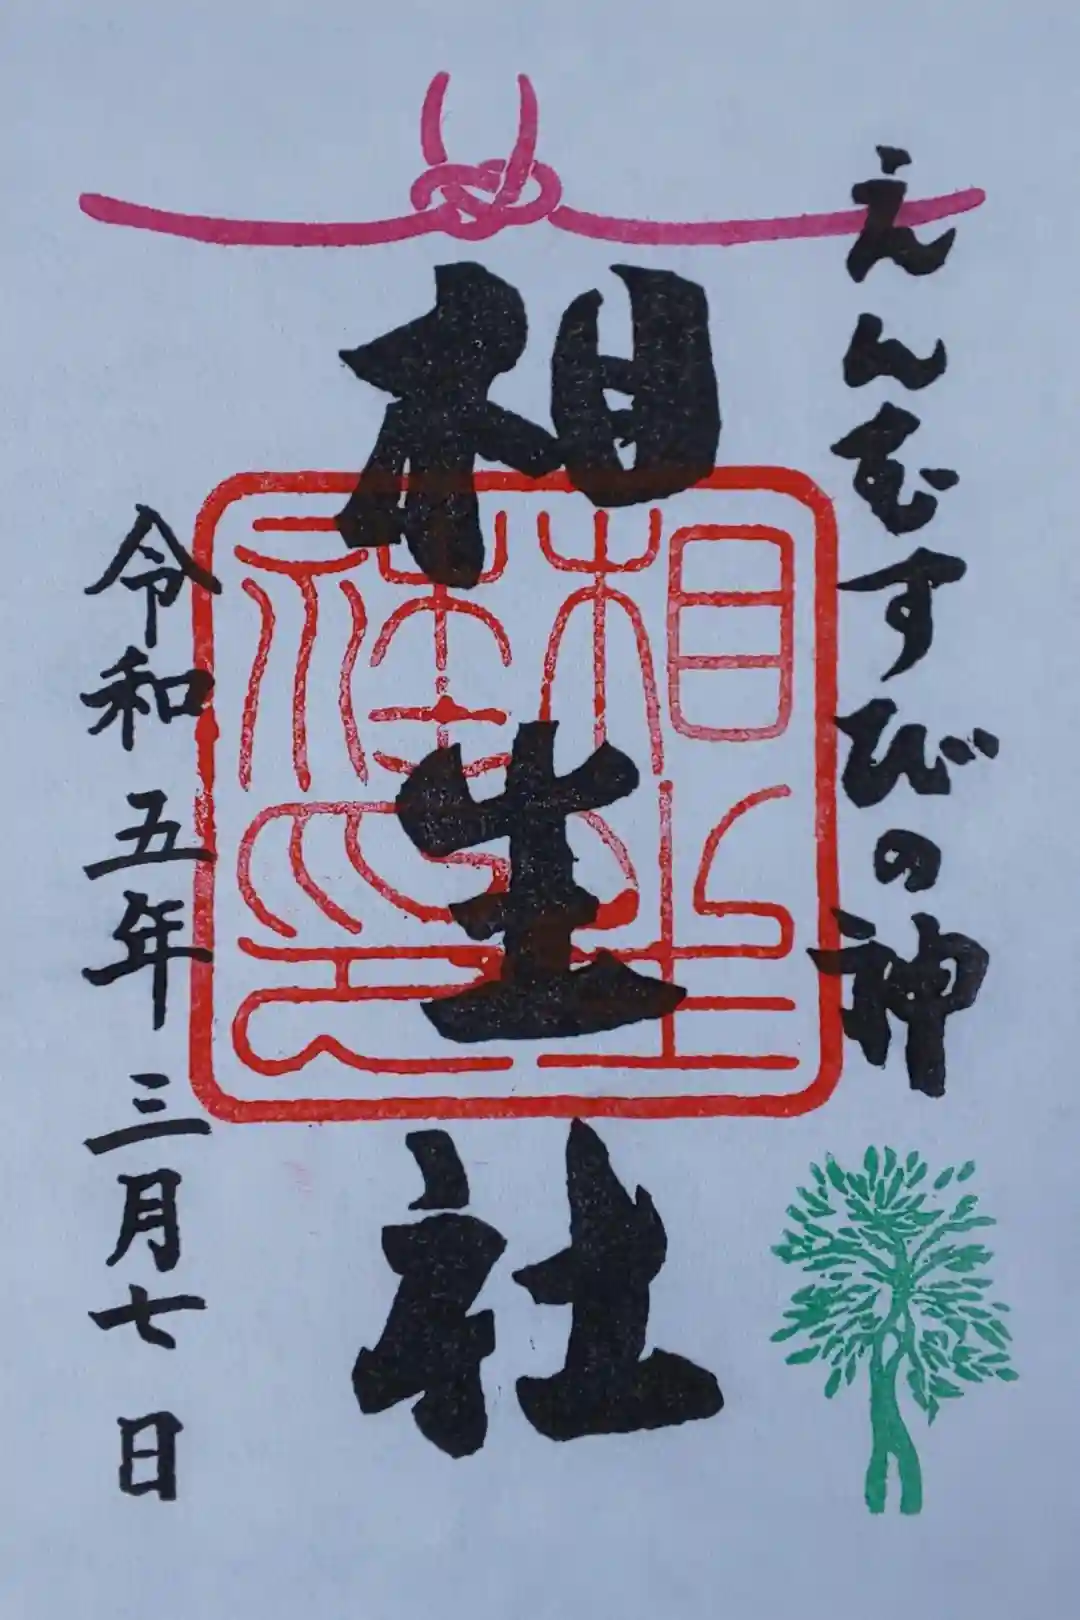 えんむすびの神
相生社
令和五年三月七日